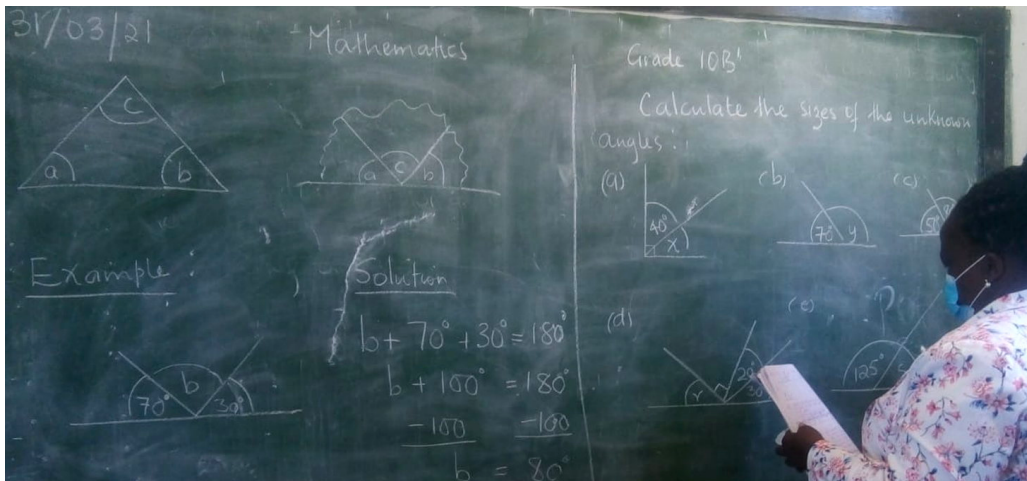 31/03/21
Mathematics
c
a
b
a c b
Example:
70° b 30°
Solution
b + 70° + 30° = 180°
b + 100° = 180°
-100 -100
b = 80°
Grade 10B'
Calculate the sizes of the unknown
angles:
(a)
40°
x
(b)
70° y
(c)
(d)
r
20°
30
(e)
125°